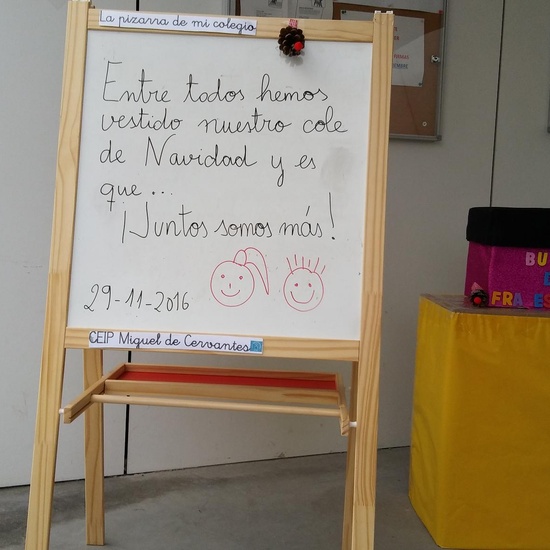 La pizarra de mi colegio
Entre todos hemos
vestido nuestro cole
de Navidad y es
que...
¡Juntos somos más!
29-11-2016
CEIP Miguel de Cervantes